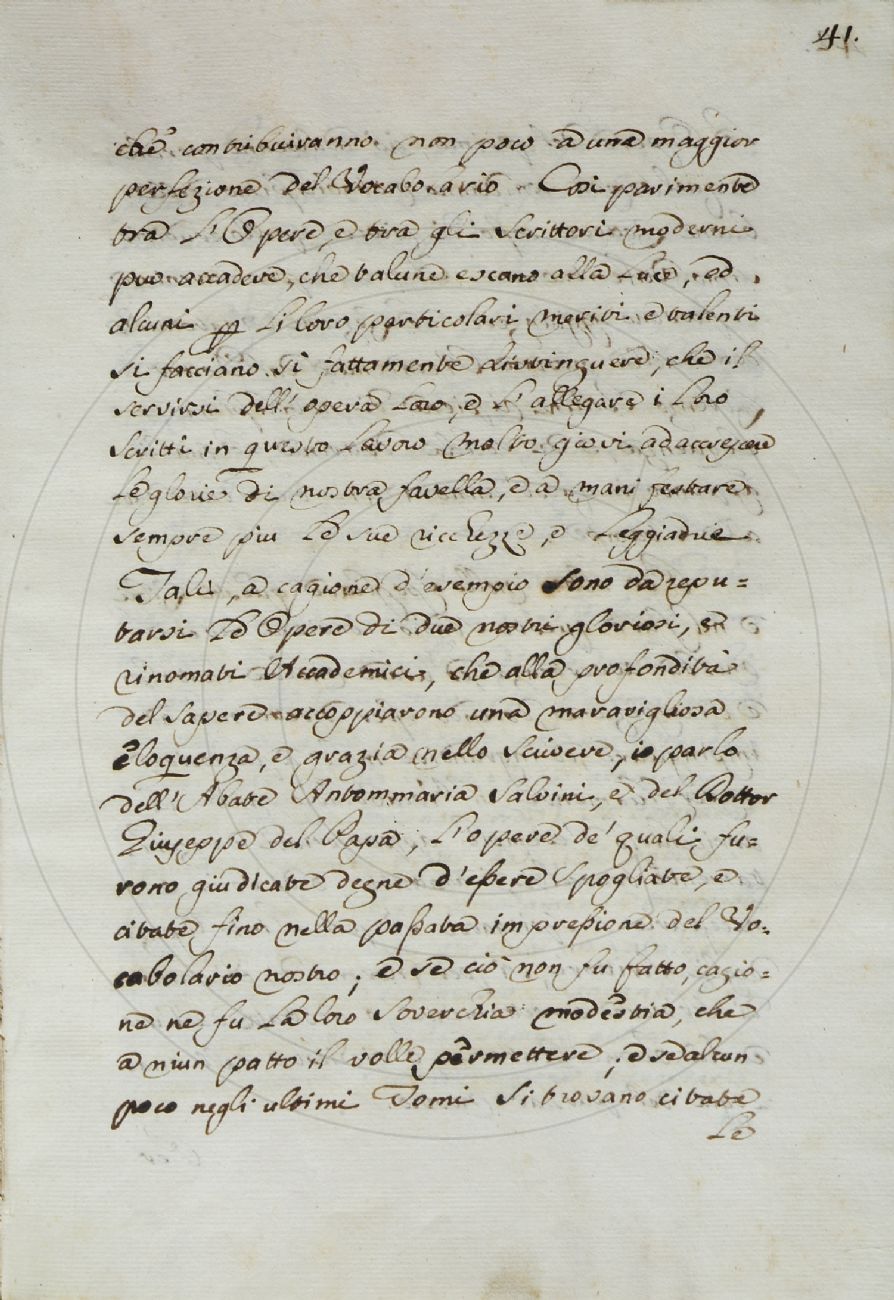 41.
che contribuiranno non poco a una maggior
perfezione del Vocabolario. Così parimente
tra l'Opere, e tra gli Scrittori moderni
può accadere, che talune escano alla luce, ed
alcuni per li loro particolari meriti e talenti
si facciano sì fattamente distinguere, che il
servirsi dell'opera loro, e l'allegare i loro
scritti in questo lavoro molto giovi ad accrescere
le glorie di nostra favella, e a manifestare
sempre più le sue ricchezze, e leggiadrie
Tali, a cagione d'esempio sono da repu=
tarsi le Opere di due nostri gloriosi, e
rinomati Accademici, che alla profondità
del sapere accoppiarono una maravigliosa
eloquenza, e grazia nello scrivere, io parlo
dell'Abate Antommaria Salvini, e del Dottor
Giuseppe del Papa, l'opere de' quali fu=
rono giudicate degne d'eßere spogliate, e
citate fino nella paßata impreßione del Vo=
cabolario nostro; e se ciò non fu fatto, cagio=
ne ne fu la loro soverchia modestia, che
a niun patto il volle permettere; e se alcun
poco negli ultimi Tomi si trovano citate
le